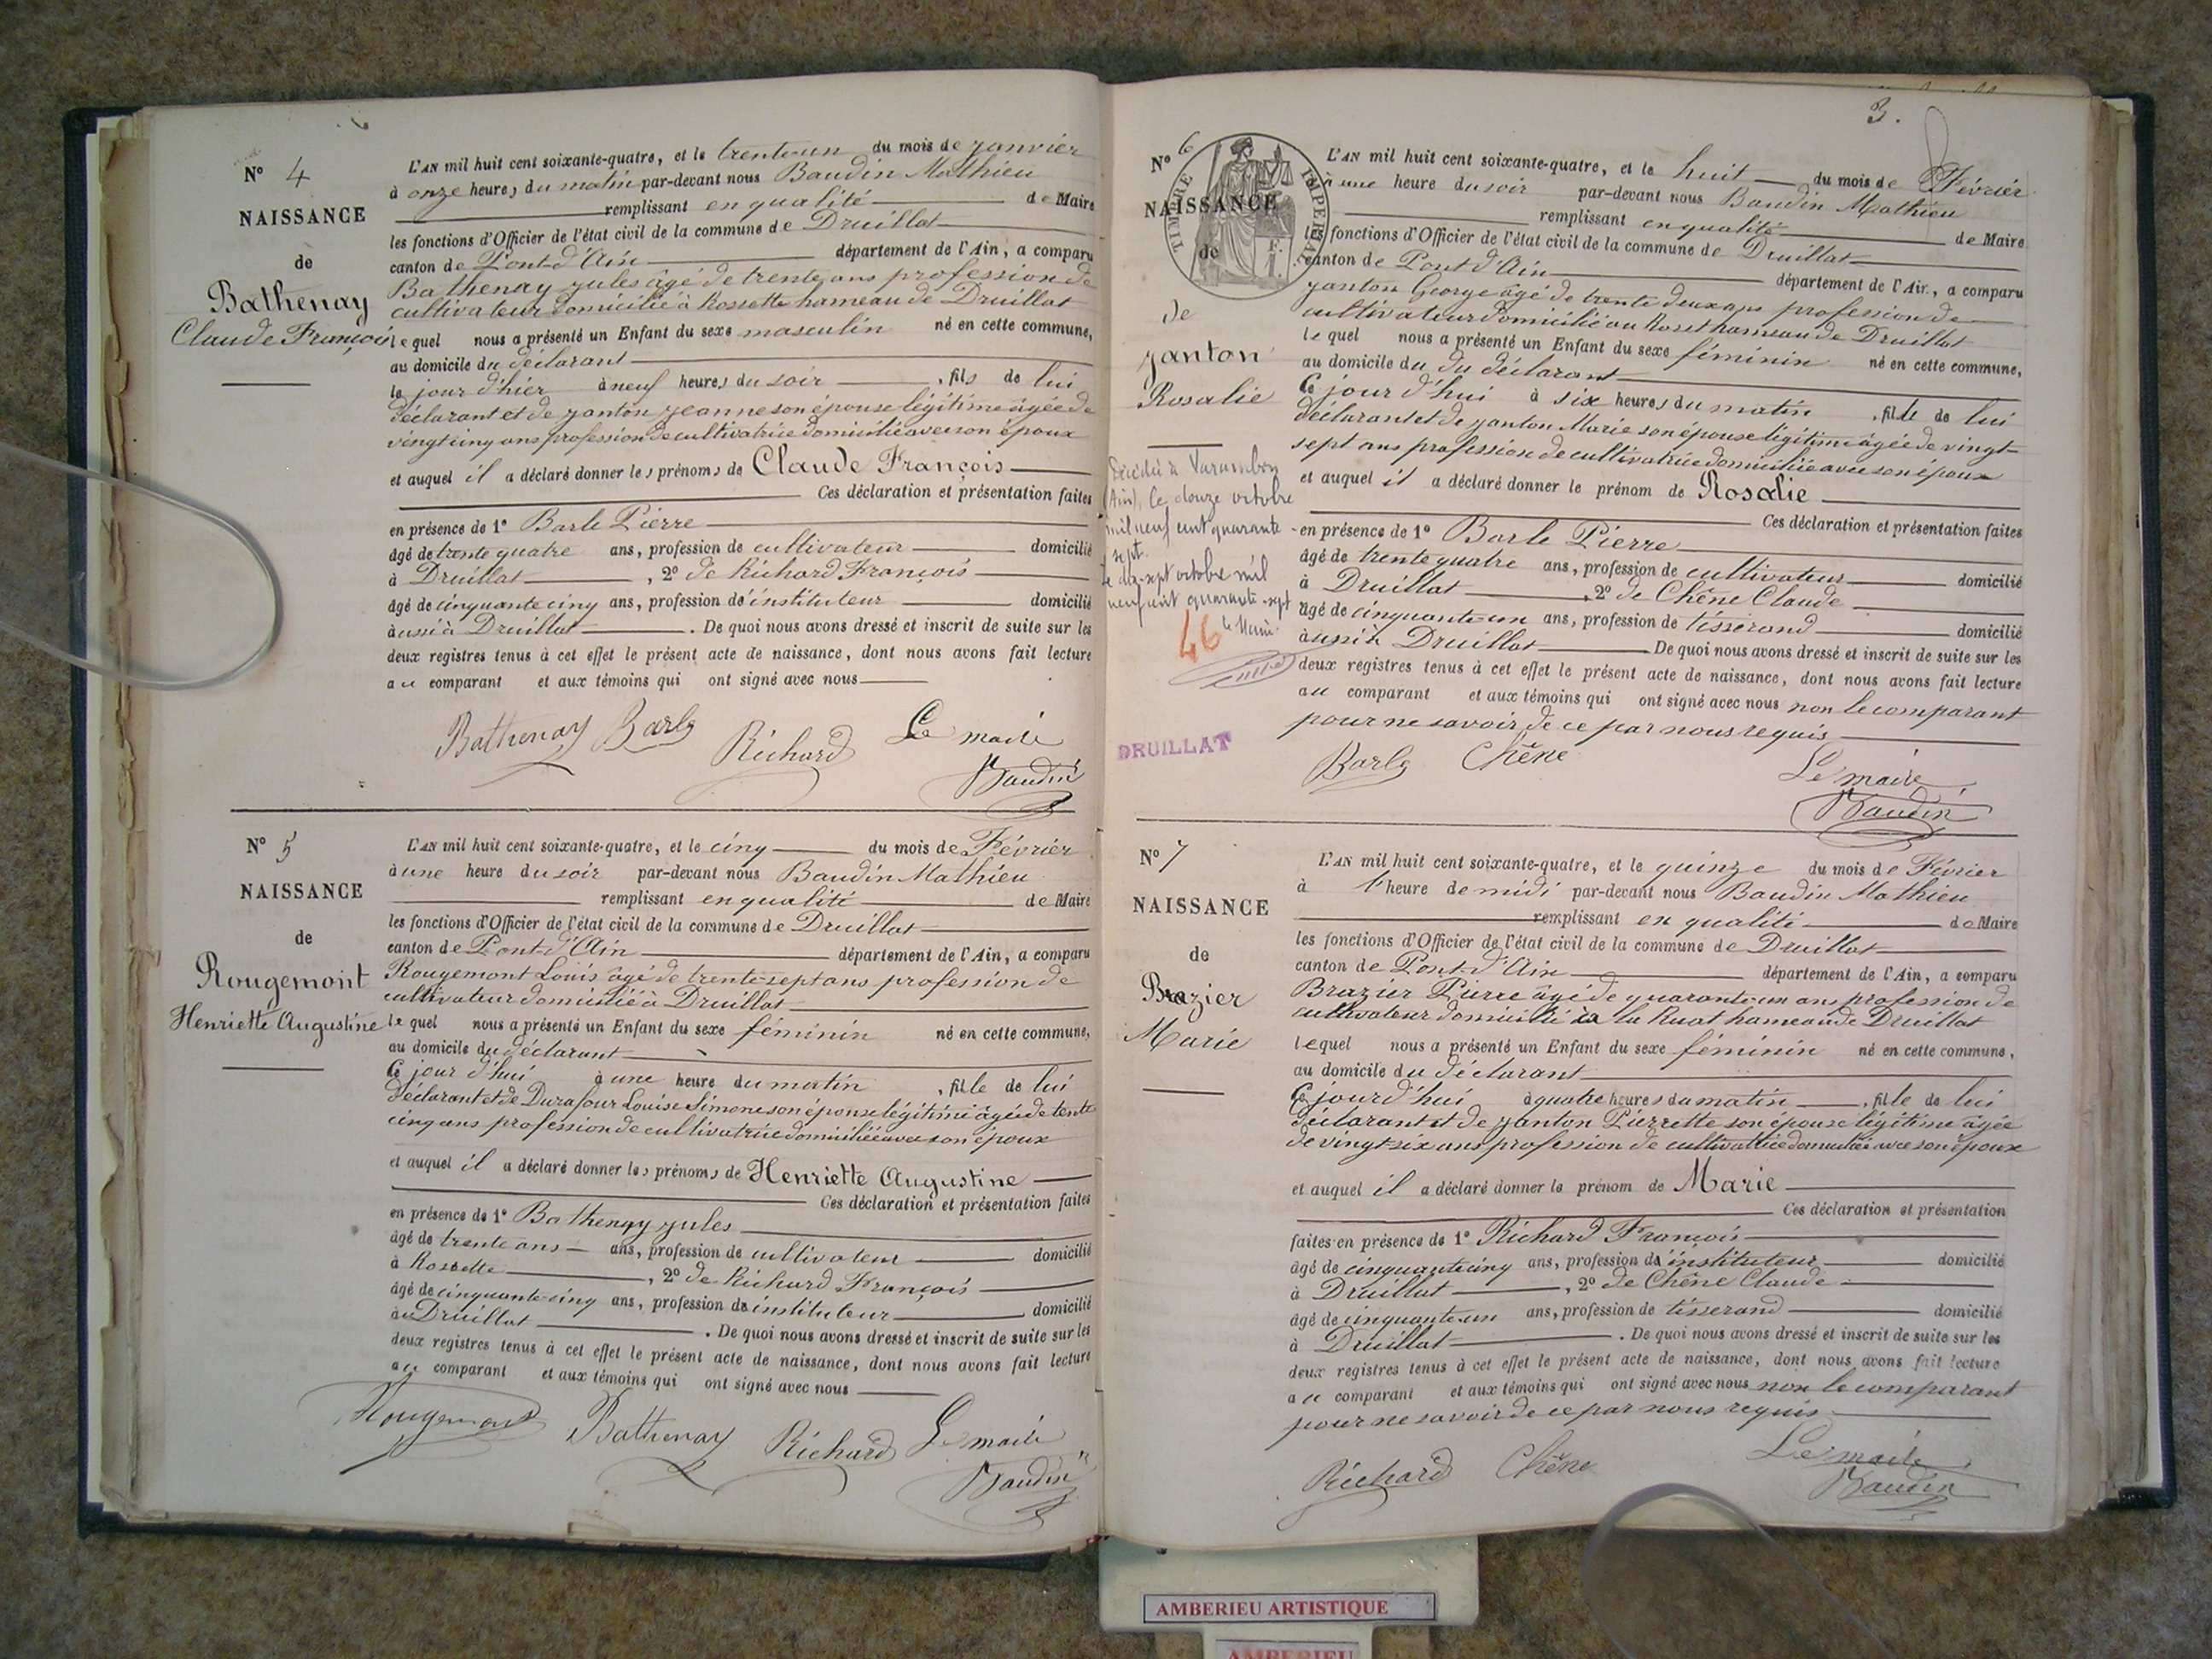 N° 4
NAISSANCE
de
Bathenay
Claude François
L'AN mil huit cent soixante-quatre, et le trente-un du mois de Janvier
à onze heures du matin par-devant nous Baudin Mathieu
remplissant en qualité de Maire
les fonctions d'Officier de l'état civil de la commune de Druillat
canton de Pont-d'Ain département de l'Ain, a comparu
Bathenay Jules âgé de trente ans profession de
cultivateur domicilié à Rossette hameau de Druillat
lequel nous a présenté un Enfant du sexe masculin né en cette commune,
au domicile du déclarant
le jour d'hier à neuf heures du soir, fils de lui
déclarant et de Janton Jeanne son épouse légitime âgée de
vingt cinq ans profession de cultivatrice domiciliée avec son époux
et auquel il a déclaré donner les prénoms de Claude François
Ces déclaration et présentation faites
en présence de 1° Barle Pierre
âgé de trente quatre ans, profession de cultivateur domicilié
à Druillat, 2° de Richard François
âgé de cinquante cinq ans, profession d'instituteur domicilié
aussi à Druillat. De quoi nous avons dressé et inscrit de suite sur les
deux registres tenus à cet effet le présent acte de naissance, dont nous avons fait lecture
au comparant et aux témoins qui ont signé avec nous
Bathenay Barle Richard Le maire
Baudin
N° 5
NAISSANCE
de
Rougemont
Henriette Augustine
L'AN mil huit cent soixante-quatre, et le cinq du mois de Février
à une heure du soir par-devant nous Baudin Mathieu
remplissant en qualité de Maire
les fonctions d'Officier de l'état civil de la commune de Druillat
canton de Pont-d'Ain département de l'Ain, a comparu
Rougemont Louis âgé de trente-sept ans profession de
cultivateur domicilié à Druillat
lequel nous a présenté un Enfant du sexe féminin né en cette commune,
au domicile du déclarant
Ce jour d'hui à une heure du matin, fille de lui
déclarant et de Durafour Louise Simone son épouse légitime âgée de trente
cinq ans profession de cultivatrice domiciliée avec son époux
et auquel il a déclaré donner les prénoms de Henriette Augustine
Ces déclaration et présentation faites
en présence de 1° Bathenay Jules
âgé de trente ans ans, profession de cultivateur domicilié
à Rossette, 2° de Richard François
âgé de cinquante-cinq ans, profession de instituteur domicilié
à Druillat. De quoi nous avons dressé et inscrit de suite sur les
deux registres tenus à cet effet le présent acte de naissance, dont nous avons fait lecture
au comparant et aux témoins qui ont signé avec nous
Rougemont Bathenay Richard Le maire
Baudin
3.
N° 6
TIMBRE IMPÉRIAL
NAISSANCE
de
de
Janton
Rosalie
Décédée à Varambon
(Ain), le douze octobre
mil neuf cent quarante
sept.
Le dix-sept octobre mil
neuf cent quarante-sept
le Maire
46
DRUILLAT
L'AN mil huit cent soixante-quatre, et le huit du mois de Février
à une heure du soir par-devant nous Baudin Mathieu
remplissant en qualité de Maire
les fonctions d'Officier de l'état civil de la commune de Druillat
canton de Pont d'Ain département de l'Ain, a comparu
Janton George âgé de trente deux ans profession de
cultivateur domicilié au Rosset hameau de Druillat
lequel nous a présenté un Enfant du sexe féminin né en cette commune,
au domicile du du déclarant
Ce jour d'hui à six heures du matin, fille de lui
déclarant et de Janton Marie son épouse légitime âgée de vingt-
sept ans profession de cultivatrice domiciliée avec son époux
et auquel il a déclaré donner le prénom de Rosalie
Ces déclaration et présentation faites
en présence de 1° Barle Pierre
âgé de trente quatre ans, profession de cultivateur domicilié
à Druillat, 2° de Chêne Claude
âgé de cinquante-un ans, profession de tisserand domicilié
aussi à Druillat. De quoi nous avons dressé et inscrit de suite sur les
deux registres tenus à cet effet le présent acte de naissance, dont nous avons fait lecture
au comparant et aux témoins qui ont signé avec nous non le comparant
pour ne savoir de ce par nous requis
Barle Chêne Le maire
Baudin
N° 7
NAISSANCE
de
Brazier
Marie
L'AN mil huit cent soixante-quatre, et le quinze du mois de Février
à l'heure de midi par-devant nous Baudin Mathieu
remplissant en qualité de Maire
les fonctions d'Officier de l'état civil de la commune de Druillat
canton de Pont-d'Ain département de l'Ain, a comparu
Brazier Pierre âgé de quarante un ans profession de
cultivateur domicilié à la Ruat hameau de Druillat
lequel nous a présenté un Enfant du sexe féminin né en cette commune,
au domicile du déclarant
Ce jour d'hui à quatre heures du matin, fille de lui
déclarant et de Janton Pierrette son épouse légitime âgée
de vingt-six ans profession de cultivatrice domiciliée avec son époux
et auquel il a déclaré donner le prénom de Marie
Ces déclaration et présentation
faites en présence de 1° Richard François
âgé de cinquante cinq ans, profession d'instituteur domicilié
à Druillat, 2° de Chêne Claude
âgé de cinquante-un ans, profession de tisserand domicilié
à Druillat. De quoi nous avons dressé et inscrit de suite sur les
deux registres tenus à cet effet le présent acte de naissance, dont nous avons fait lecture
au comparant et aux témoins qui ont signé avec nous non le comparant
pour ne savoir de ce par nous requis
Richard Chêne Le maire
Baudin
AMBERIEU ARTISTIQUE
AMBERIEU